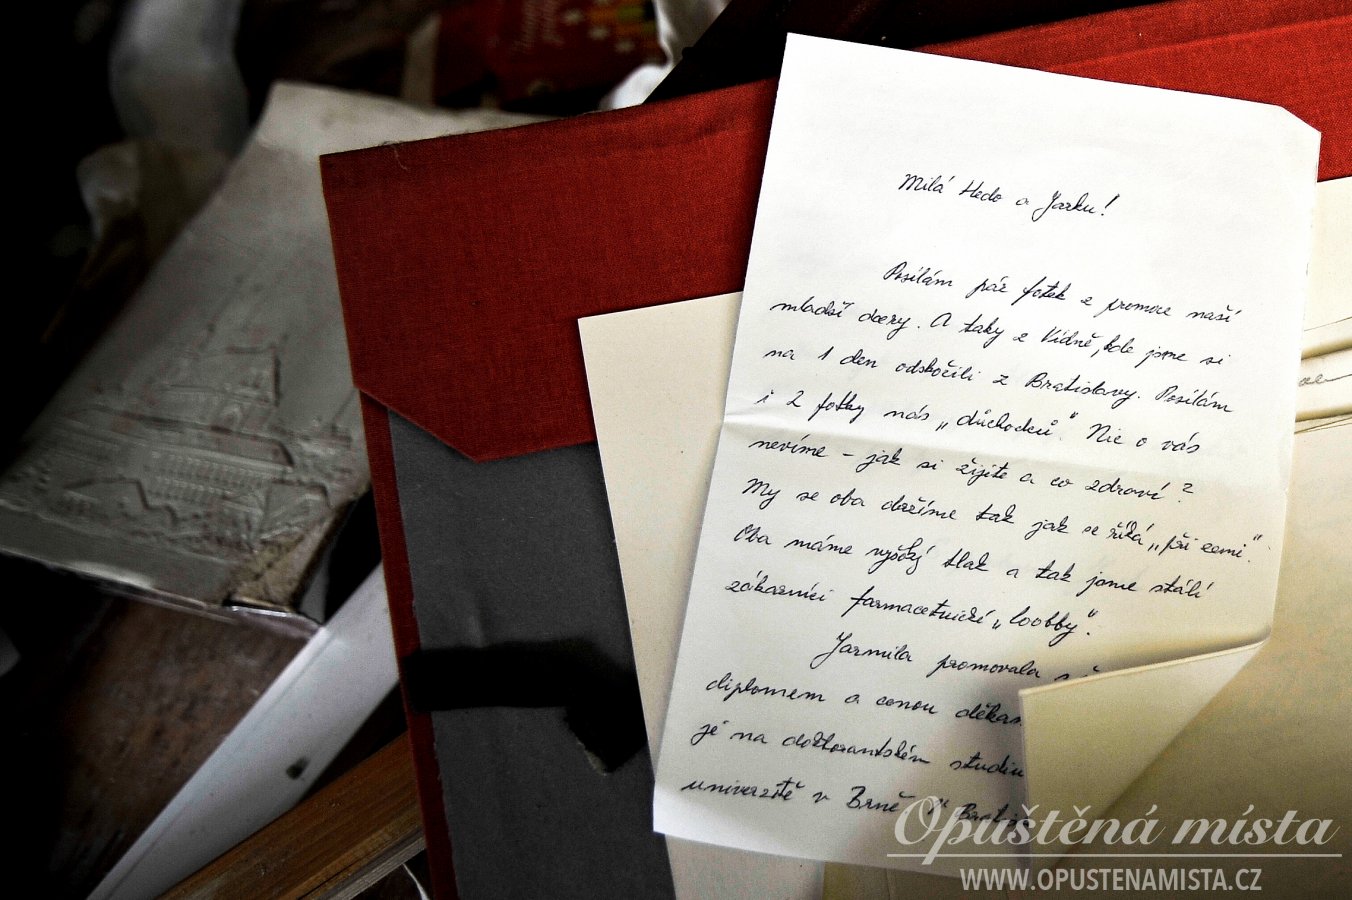 Milá Hedo a Jarku!
Posílám pár fotek z promoce naší
mladší dcery. A taky z Vídně, kde jsme si
na 1 den odskočili z Bratislavy. Posílám
i 2 fotky nás „důchodců." Nic o vás
nevíme – jak si žijete a co zdraví?
My se oba držíme tak jak se říká „při zemi."
Oba máme vysoký tlak a tak jsme stálí
zákazníci farmaceutické „loobby".
Jarmila promovala
diplomem a cenou děkan
je na doktorantském studiu
univerzitě v Brně
Opuštěná místa
WWW.OPUSTENAMISTA.CZ